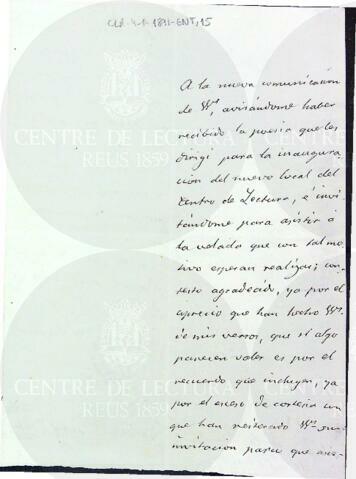 CLR-4-1-1891-ENT, 15
A la nueva comunicación
de Vds, avisándome haber
recibido la poesía que les
dirigí para la inaugura-
ción del nuevo local del
Centro de Lectura, é invi-
tándome para asistir á
la velada que con tal mo-
tivo esperan realizar; con-
testo agradecido, ya por el
aprecio que han hecho Vds.
de mis versos, que si algo
parecen valer es por el
recuerdo que incluyen, ya
por el exceso de cortesía con
que han reiterado Vds. su
invitación para que asis-
CENTRE DE LECTURA
REUS 1859
CENTRE DE LECTURA
REUS 1859